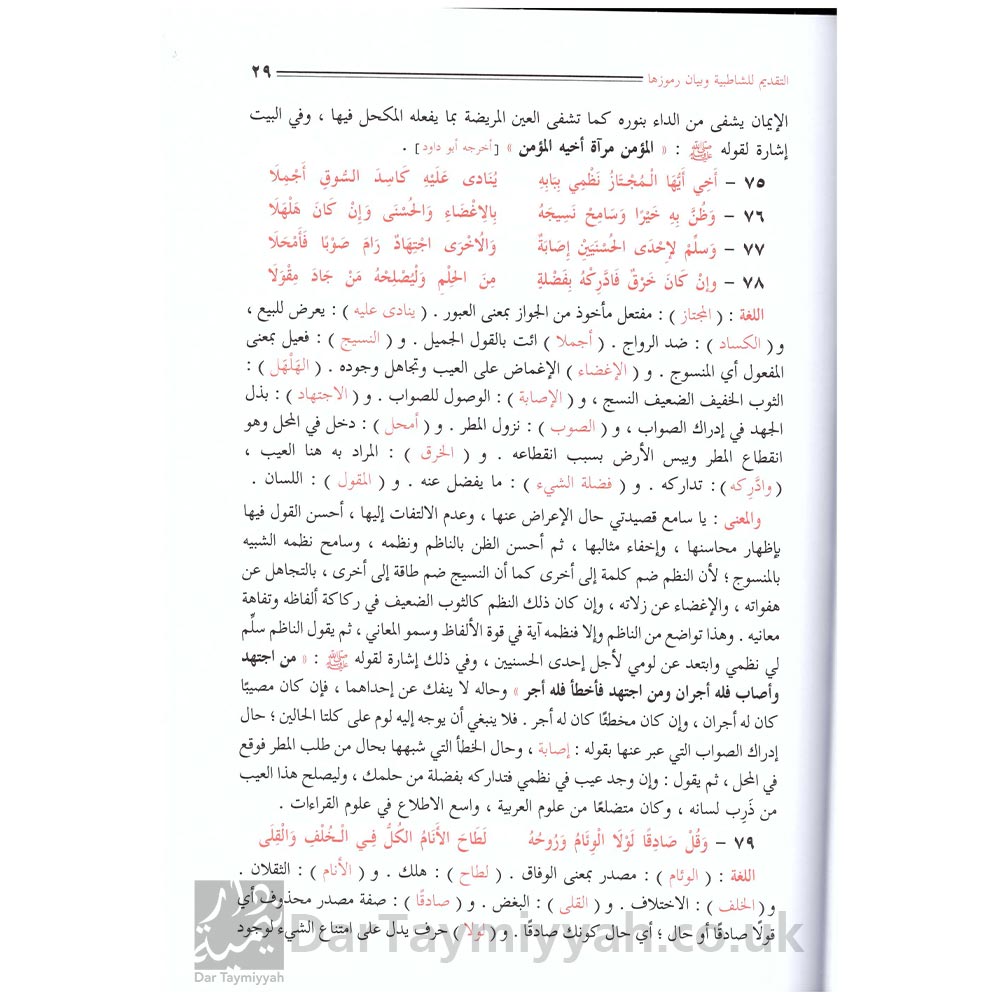 التقديم للشاطبية وبيان رموزها ٢٩
الإيمان يشفى من الداء بنوره كما تشفى العين المريضة بما يفعله المكحل فيها ، وفي البيت
إشارة لقوله ﷺ : « المؤمن مرآة أخيه المؤمن » [أخرجه أبو داود] .
٧٥ – أَخِي أَيُّهَا الْـمُجْتَازُ نَظْمِي بِبَابِهِ يُنَادَى عَلَيْهِ كَاسِدَ السُّوقِ أَجْمِلَا
٧٦ – وَظُنَّ بِهِ خَيْرًا وَسَامِحْ نَسِيجَهُ بِالاِغْضَاءِ وَالْحُسْنَى وَإِنْ كَانَ هَلْهَلَا
٧٧ – وَسَلِّمْ لِإِحْدَى الْحُسْنَيَيْنِ إِصَابَةٌ وَالْاُخْرَى اجْتِهَادٌ رَامَ صَوْبًا فَأَمْحَلَا
٧٨ – وإِنْ كَانَ خَرْقٌ فَادَّرِكْهُ بِفَضْلَةٍ مِنَ الحِلْمِ وَلْيُصْلِحْهُ مَنْ جَادَ مِقْوَلَا
اللغة : ( المجتاز ) : مفتعل مأخوذ من الجواز بمعنى العبور . ( ينادى عليه ) : يعرض للبيع ،
و ( الكساد ) : ضد الرواج . ( أجملا ) ائت بالقول الجميل . و ( النسيج ) : فعيل بمعنى
المفعول أي المنسوج . و ( الإغضاء ) الإغماض على العيب وتجاهل وجوده . ( الهَلْهَل ) :
الثوب الخفيف الضعيف النسج ، و ( الإصابة ) : الوصول للصواب . و ( الاجتهاد ) : بذل
الجهد في إدراك الصواب ، و ( الصوب ) : نزول المطر . و ( أمحل ) : دخل في المحل وهو
انقطاع المطر ويبس الأرض بسبب انقطاعه . و ( الخرق ) : المراد به هنا العيب ،
( وادَّرِكه ) : تداركه . و ( فضلة الشيء ) : ما يفضل عنه . و ( المقول ) : اللسان .
والمعنى : يا سامع قصيدتي حال الإعراض عنها ، وعدم الالتفات إليها ، أحسن القول فيها
بإظهار محاسنها ، وإخفاء مثالبها ، ثم أحسن الظن بالناظم ونظمه ، وسامح نظمه الشبيه
بالمنسوج ؛ لأن النظم ضم كلمة إلى أخرى كما أن النسيج ضم طاقة إلى أخرى ، بالتجاهل عن
هفواته ، والإغضاء عن زلاته ، وإن كان ذلك النظم كالثوب الضعيف في ركاكة ألفاظه وتفاهة
معانيه . وهذا تواضع من الناظم وإلا فنظمه آية في قوة الألفاظ وسمو المعاني ، ثم يقول الناظم سلِّم
لي نظمي وابتعد عن لومي لأجل إحدى الحسنيين ، وفي ذلك إشارة لقوله ﷺ : « من اجتهد
وأصاب فله أجران ومن اجتهد فأخطأ فله أجر » وحاله لا ينفك عن إحداهما ، فإن كان مصيبًا
كان له أجران ، وإن كان مخطئًا كان له أجر . فلا ينبغي أن يوجه إليه لوم على كلتا الحالين ؛ حال
إدراك الصواب التي عبر عنها بقوله : إصابة ، وحال الخطأ التي شبهها بحال من طلب المطر فوقع
في المحل ، ثم يقول : وإن وجد عيب في نظمي فتداركه بفضلة من حلمك ، وليصلح هذا العيب
من ذَرِب لسانه ، وكان متضلعًا من علوم العربية ، واسع الاطلاع في علوم القراءات .
٧٩ – وَقُلْ صَادِقًا لَوْلَا الْوِئَامُ وَرُوحُهُ لَطَاحَ الأَنَامُ الكُلُّ فِي الْـخُلْفِ وَالْقِلَى
اللغة : ( الوئام ) : مصدر بمعنى الوفاق . ( لطاح ) : هلك . و ( الأنام ) : الثقلان .
و ( الخلف ) : الاختلاف . و ( القلى ) : البغض . و ( صادقًا ) : صفة مصدر محذوف أي
قولًا صادقًا أو حال ؛ أي حال كونك صادقًا . و ( لولا ) حرف يدل على امتناع الشيء لوجود
دار تيمية
Dar Taymiyyah
DarTaymiyyah.co.uk